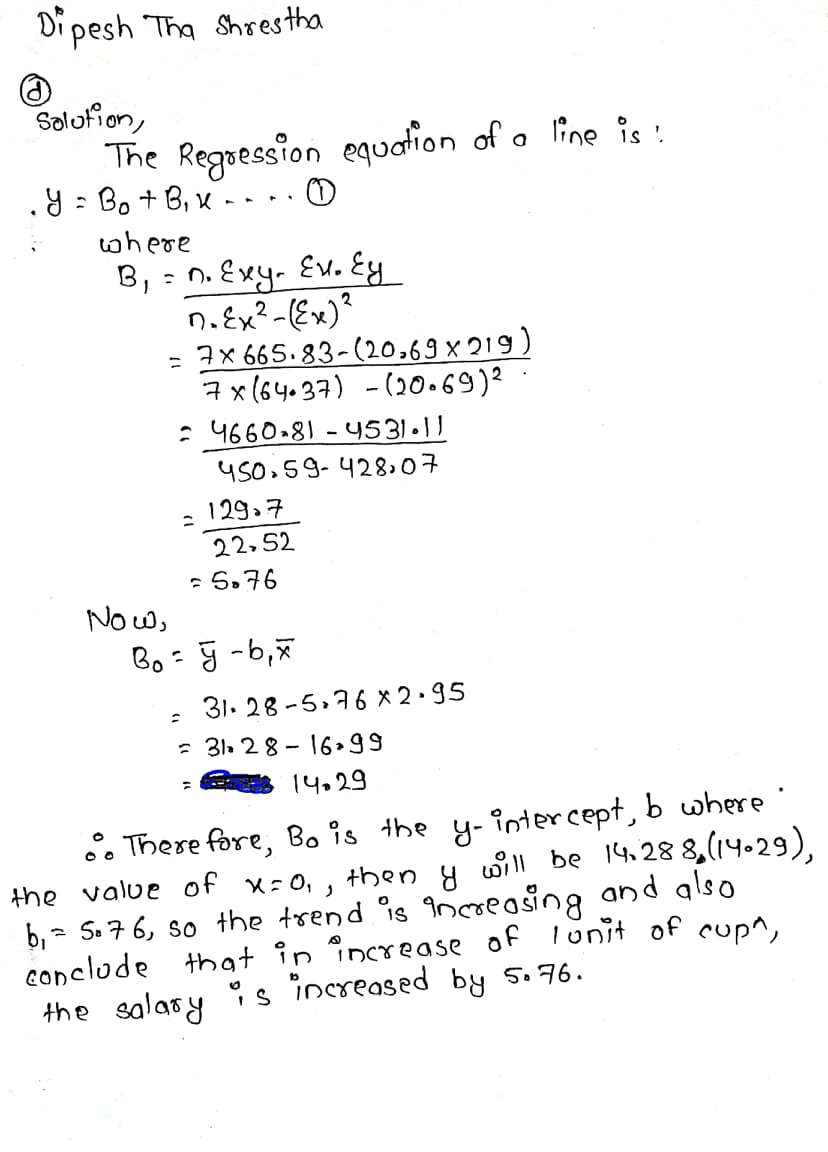 Dipesh Tha Shrestha
ⓓ
Solution,
The Regression equation of a line is :
. y = B₀ + B₁ x - - - . . ①
where
B₁ = n. Σxy - Σx. Σy
n. Σx² - (Σx)²
= 7 x 665.83 - (20.69 x 219)
7 x (64.37) - (20.69)²
= 4660.81 - 4531.11
450.59 - 428.07
= 129.7
22.52
= 5.76
Now,
B₀ = ȳ - b₁x̄
= 31.28 - 5.76 x 2.95
= 31.28 - 16.99
= 14.29
∴ Therefore, B₀ is the y-intercept, b where
the value of x=0, , then y will be 14.288,(14.29),
b₁ = 5.76, so the trend is increasing and also
conclude that in increase of 1 unit of cupn,
the salary is increased by 5.76.